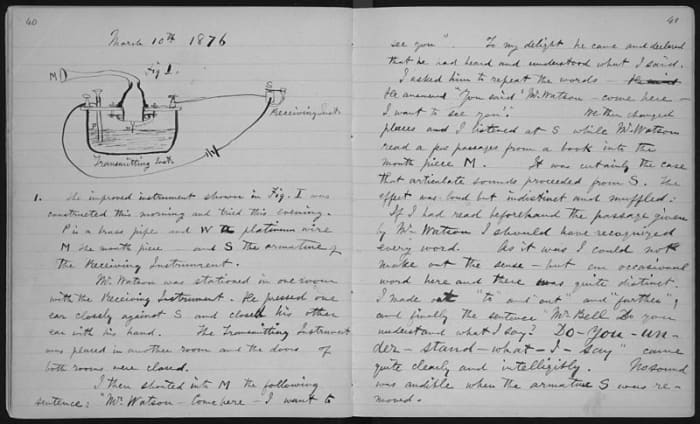 40
March 10th 1876
M
Fig 1.
S
Receiving Inst.
P
W
Transmitting Inst.
1. The improved instrument shown in Fig. I was
constructed this morning and tried this evening.
P is a brass pipe and W the platinum wire
M the mouth piece and S the armature of
the Receiving Instrument.
Mr. Watson was stationed in one room
with the Receiving Instrument. He pressed one
ear closely against S and closed his other
ear with his hand. The Transmitting Instrument
was placed in another room and the doors of
both rooms were closed.
I then shouted into M the following
sentence: "Mr. Watson - Come here - I want to
41
see you". To my delight he came and declared
that he had heard and understood what I said.
I asked him to repeat the words -
He answered "You said 'Mr. Watson - come here -
I want to see you'." We then changed
places and I listened at S while Mr. Watson
read a few passages from a book into the
mouth piece M. It was certainly the case
that articulate sounds proceeded from S. The
effect was loud but indistinct and muffled.
If I had read beforehand the passage given
by Mr. Watson I should have recognized
every word. As it was I could not
make out the sense - but an occasional
word here and there was quite distinct.
I made out "to" and "out" and "further";
and finally the sentence "Mr. Bell Do you
understand what I say? Do-You-un-
der-stand-what-I-say" came
quite clearly and intelligibly. No sound
was audible when the armature S was re-
moved.